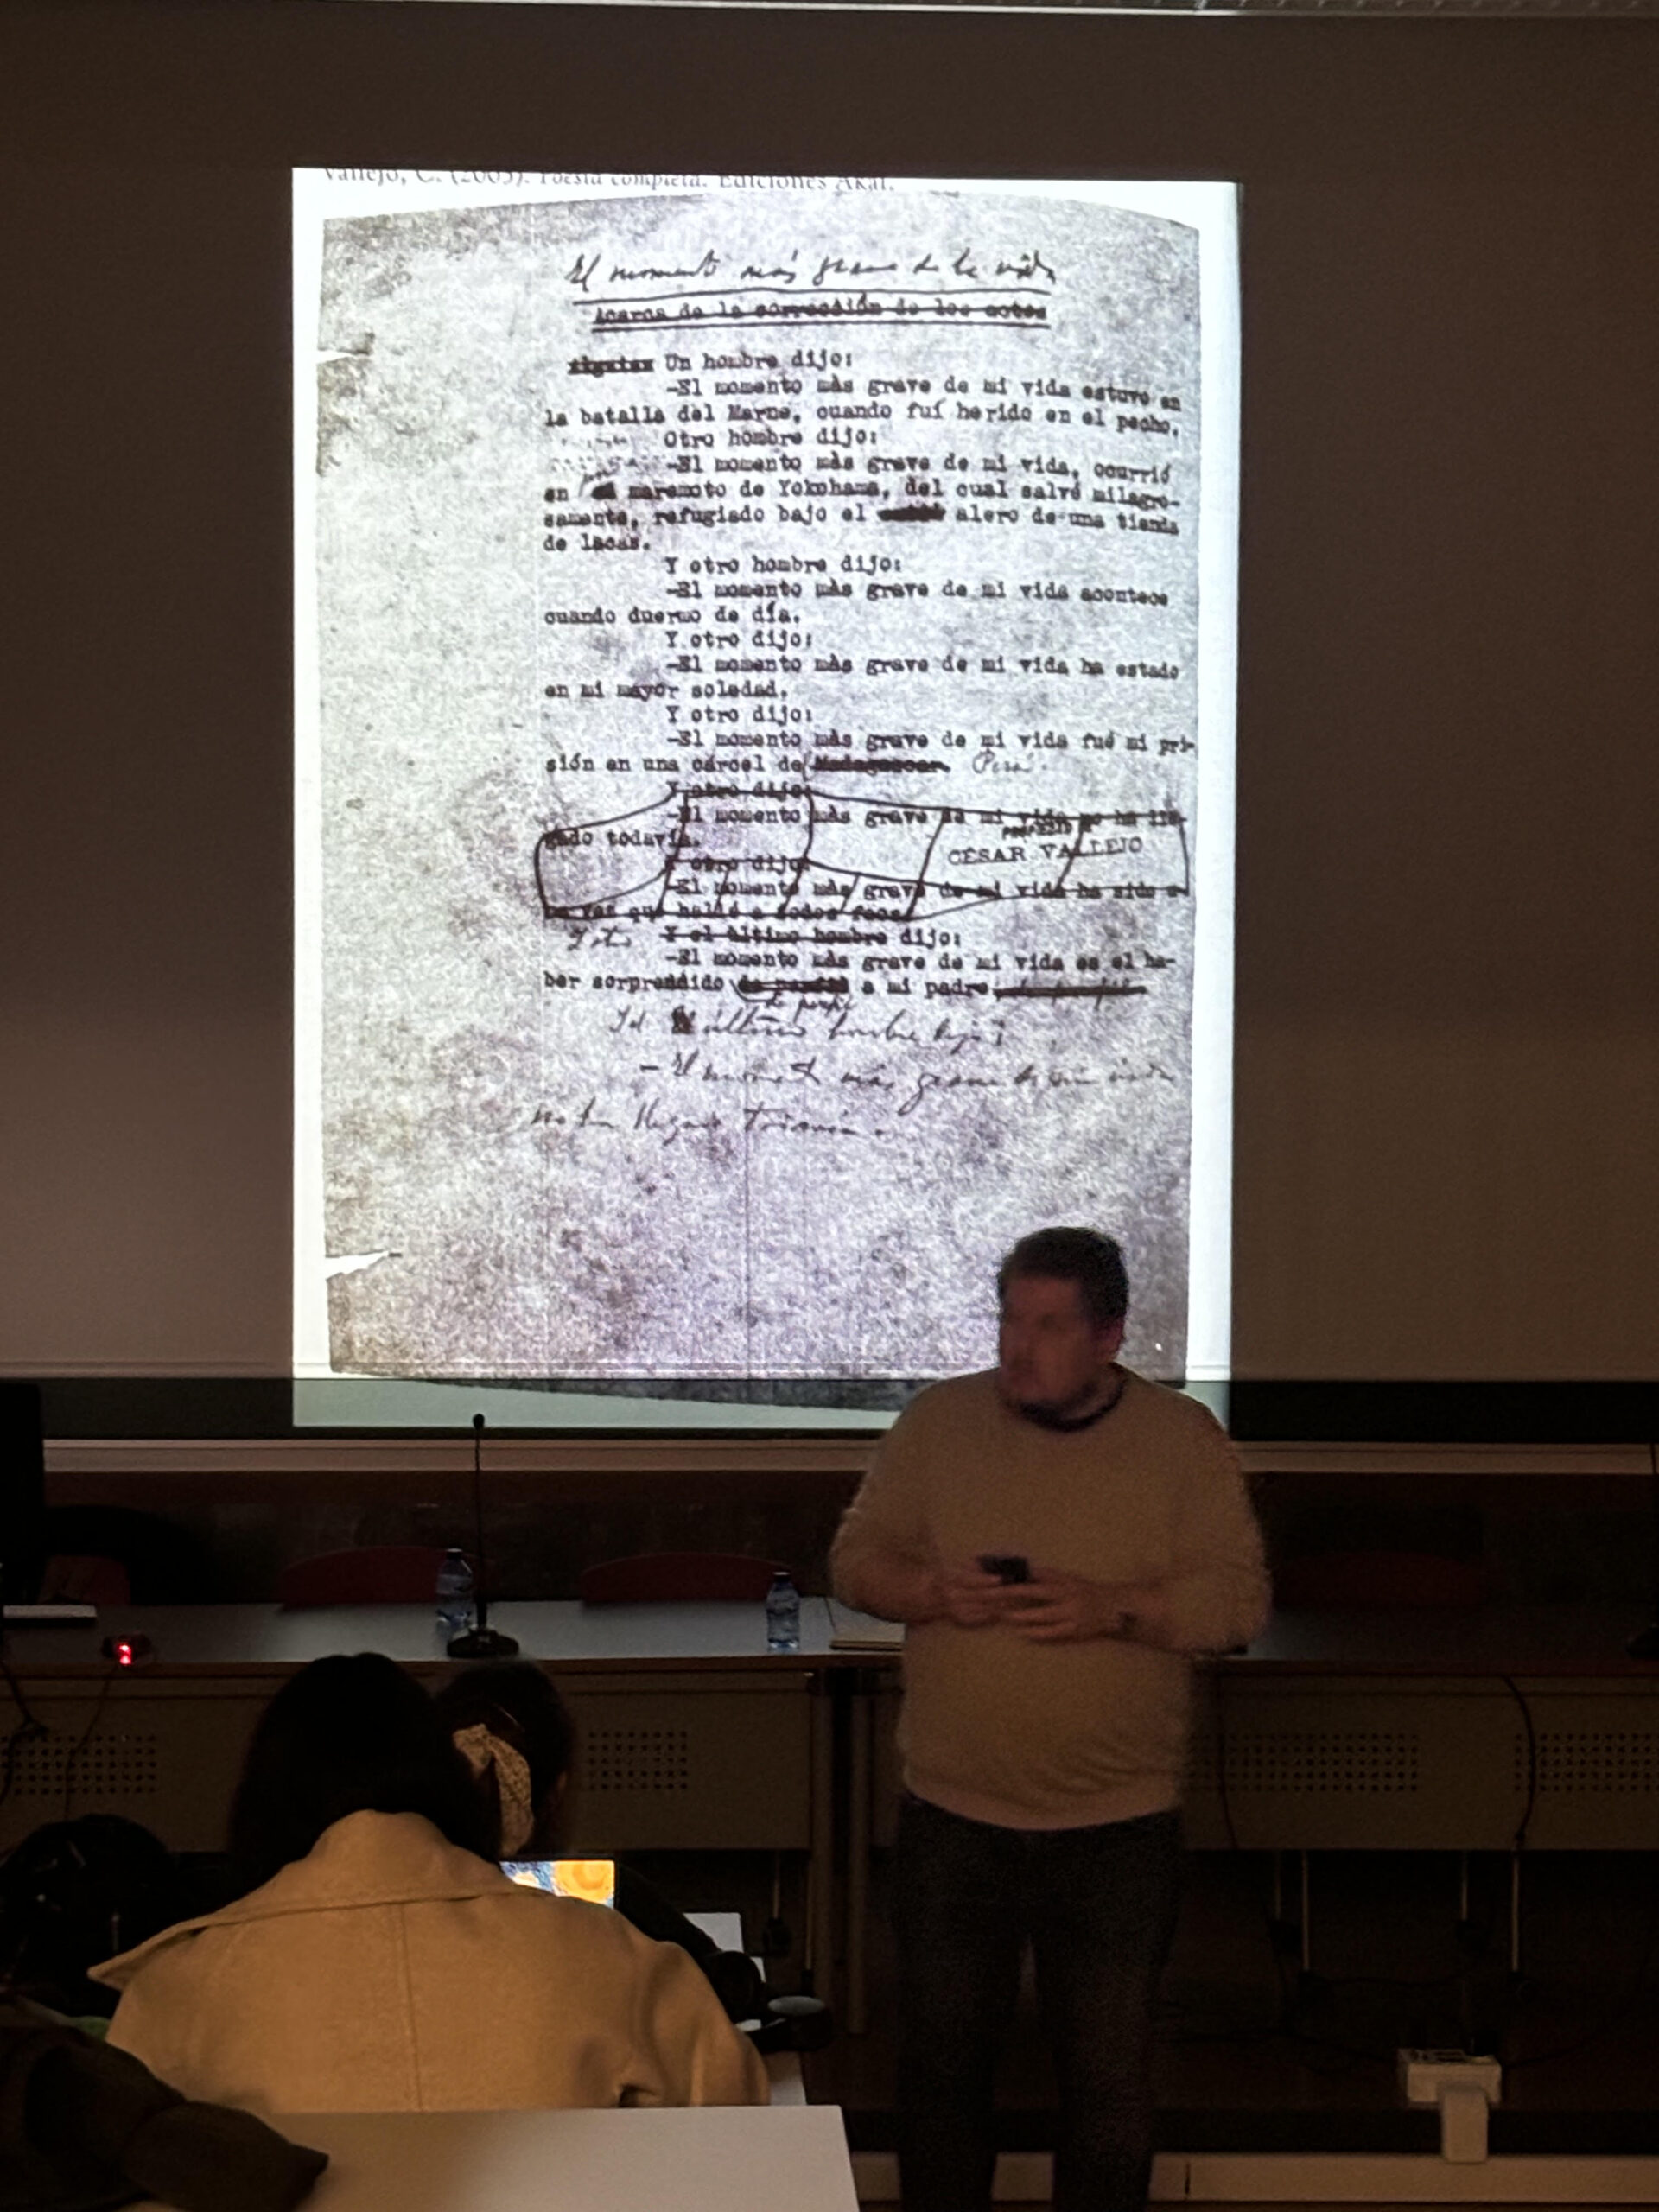 Vallejo, C. (2005). Poesía completa. Ediciones Akal.
El momento más grave de la vida
Acerca de la corrección de los actos
Un hombre dijo:
-El momento màs grave de mi vida estuvo en
la batalla del Marne, cuando fuí herido en el pecho.
Otro hombre dijo:
-El momento màs grave de mi vida, ocurrió
en maremoto de Yokohama, del cual salvé milagro-
samente, refugiado bajo el alero de una tienda
de lacas.
Y otro hombre dijo:
-El momento màs grave de mi vida acontece
cuando duermo de día.
Y otro dijo:
-El momento màs grave de mi vida ha estado
en mi mayor soledad.
Y otro dijo:
-El momento màs grave de mi vida fué mi pri-
sión en una cárcel de Madagascar. Perú.
Y otro dijo:
-El momento màs grave de mi vida no ha lle-
gado todavía.
CÉSAR VALLEJO
Y otro dijo:
-El momento màs grave de mi vida ha sido u-
na vez que hallé a todos
Y otro Y el último hombre dijo:
-El momento màs grave de mi vida es el ha-
ber sorprendido de perfil a mi padre, de perfil
de perfil
Y el último hombre dijo:
- El momento más grave de mi vida
no ha llegado todavía.